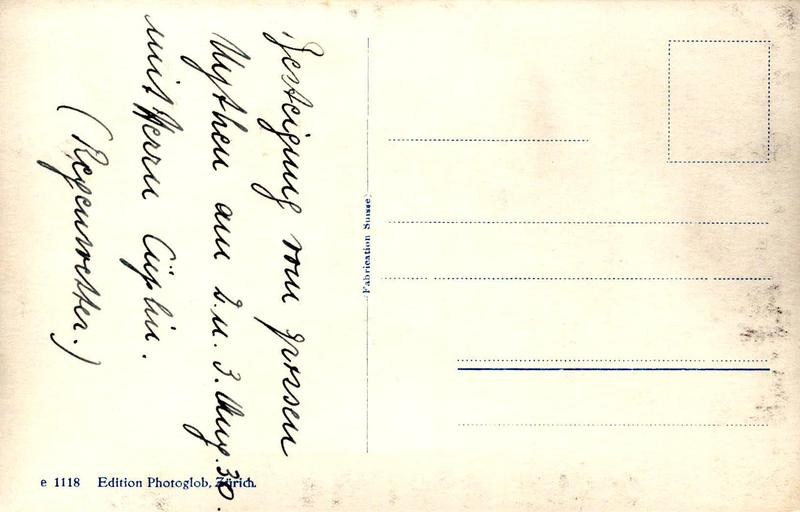 Besteigung vom grossen
Mythen am 2. u. 3. Aug. 30.
mit Herrn Cüplin.
(Regenwetter.)
Fabrication Suisse
e 1118 Edition Photoglob, Zürich.